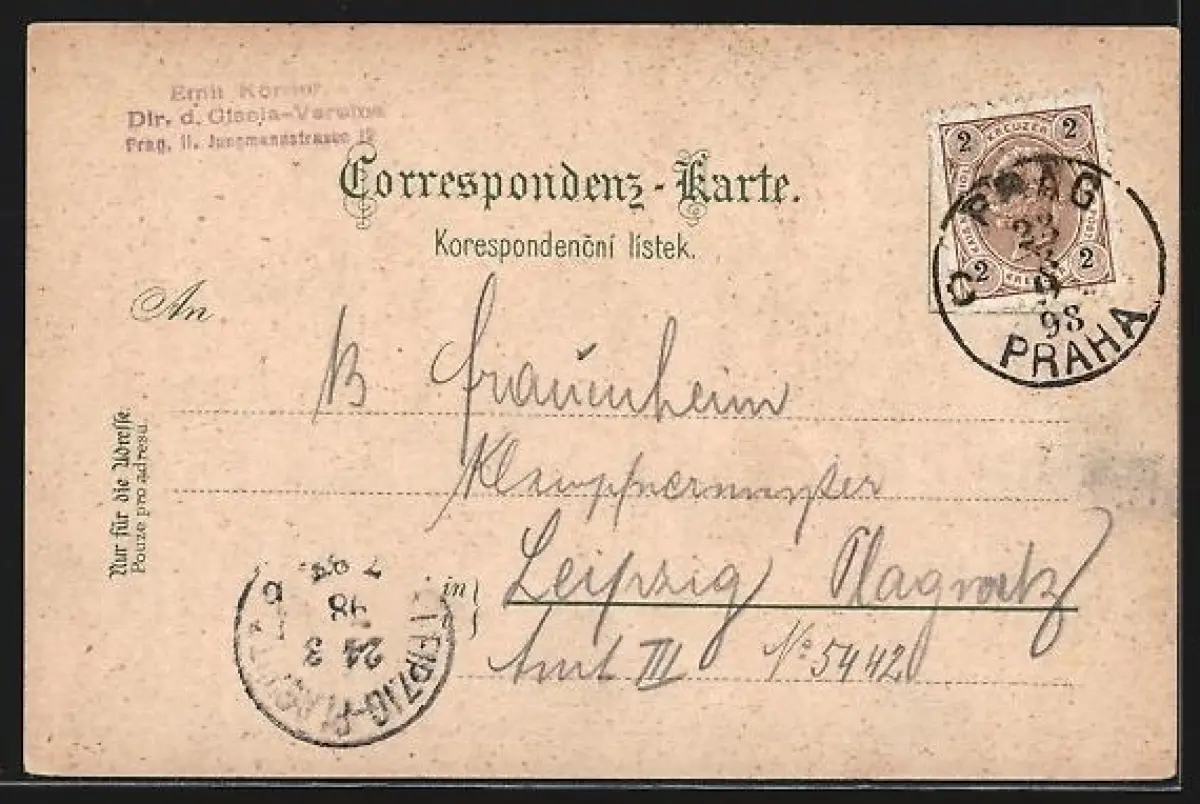 Emil
Dir. d. Gisela-Vereins
Prag, II. Jungmannstrasse 12
Correspondenz-Karte.
Korespondenční lístek.
2 KREUZER 2
2 2
PRAG
23
98
C PRAHA
An
B Frauenheim
Klempnermeyster
in} Leipzig Plagwitz
Amt III No 5442
Nur für die Adresse
Pouze pro adresu.
LEIPZIG-PLAGWITZ
24 3
98
7